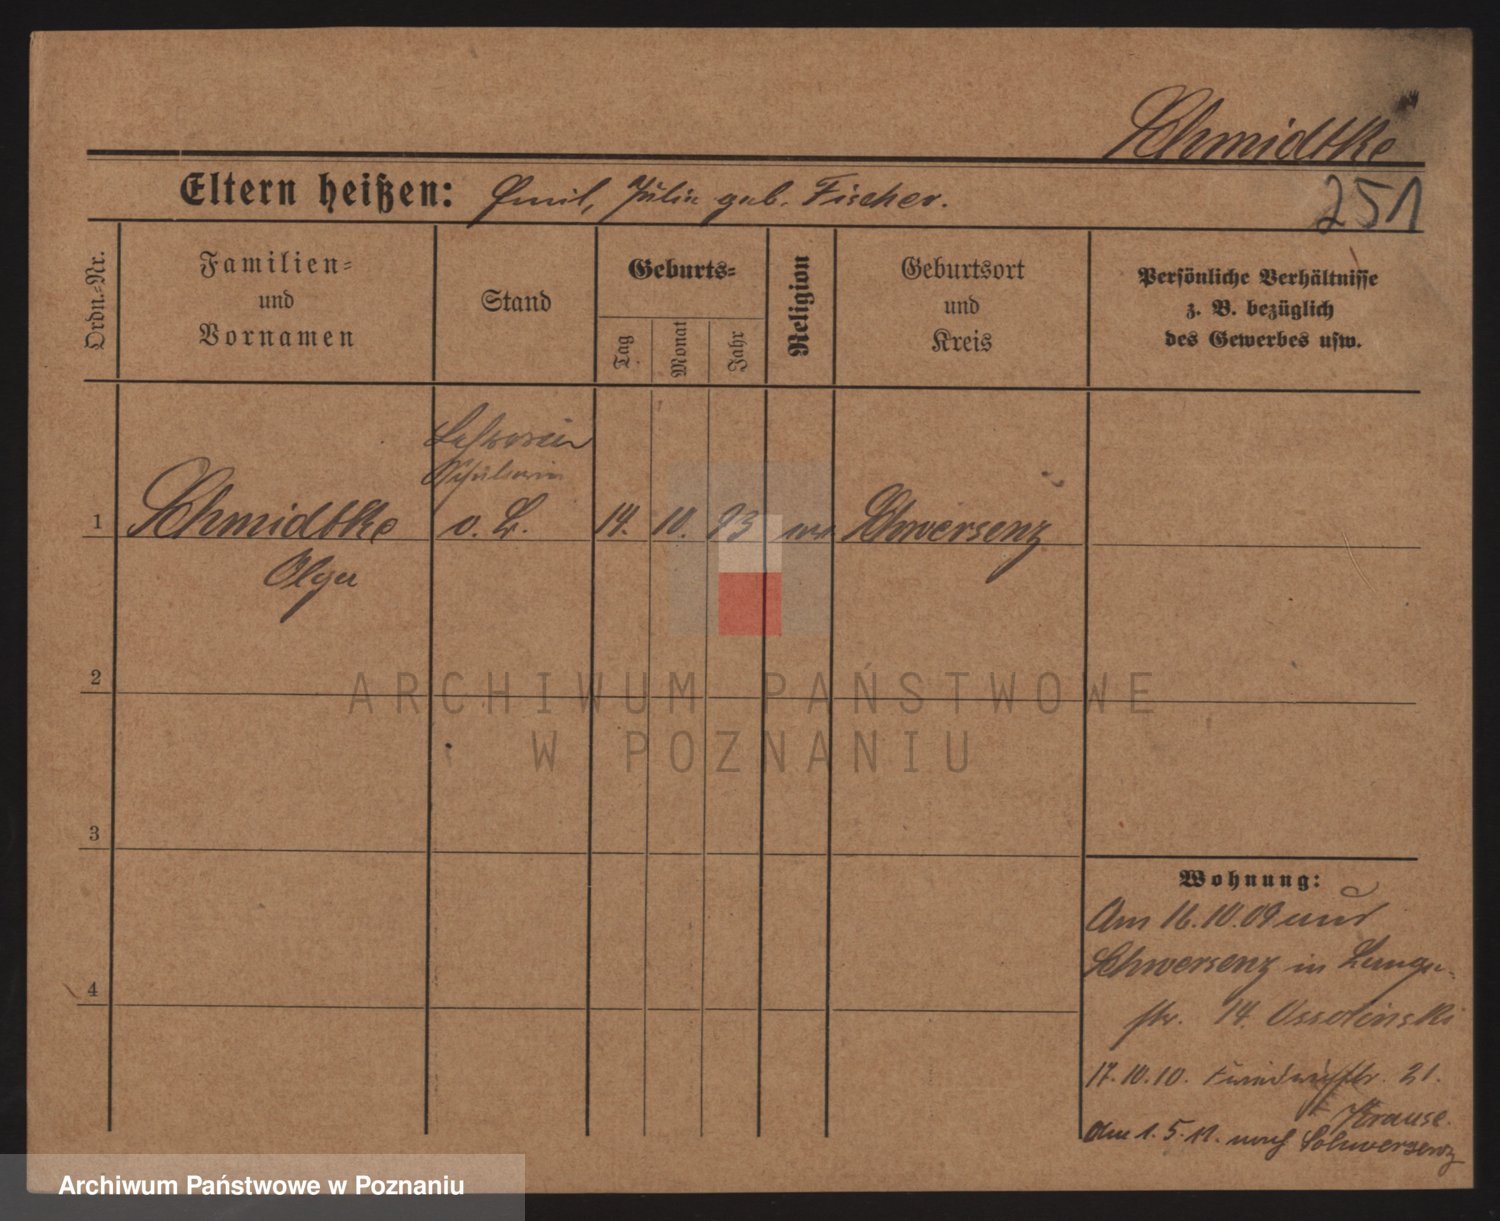 Schmidtke
Eltern heißen: Emil, Julie geb. Fischer.
251
Ordn.-Nr.
Familien-
und
Vornamen
Stand
Geburts-
Tag
Monat
Jahr
Religion
Geburtsort
und
Kreis
Persönliche Verhältnisse
z. B. bezüglich
des Gewerbes usw.
Schülerin
1 Schmidtke o. B. 14. 10. 93 Schwersenz
Olga
2
3
4
Wohnung:
Am 16.10.09 aus
Schwersenz in Lange-
str. 14. Ossolinski
17.10.10. 21.
Krause.
Am 1.5.11. nach Schwersenz
ARCHIWUM PAŃSTWOWE
W POZNANIU
Archiwum Państwowe w Poznaniu